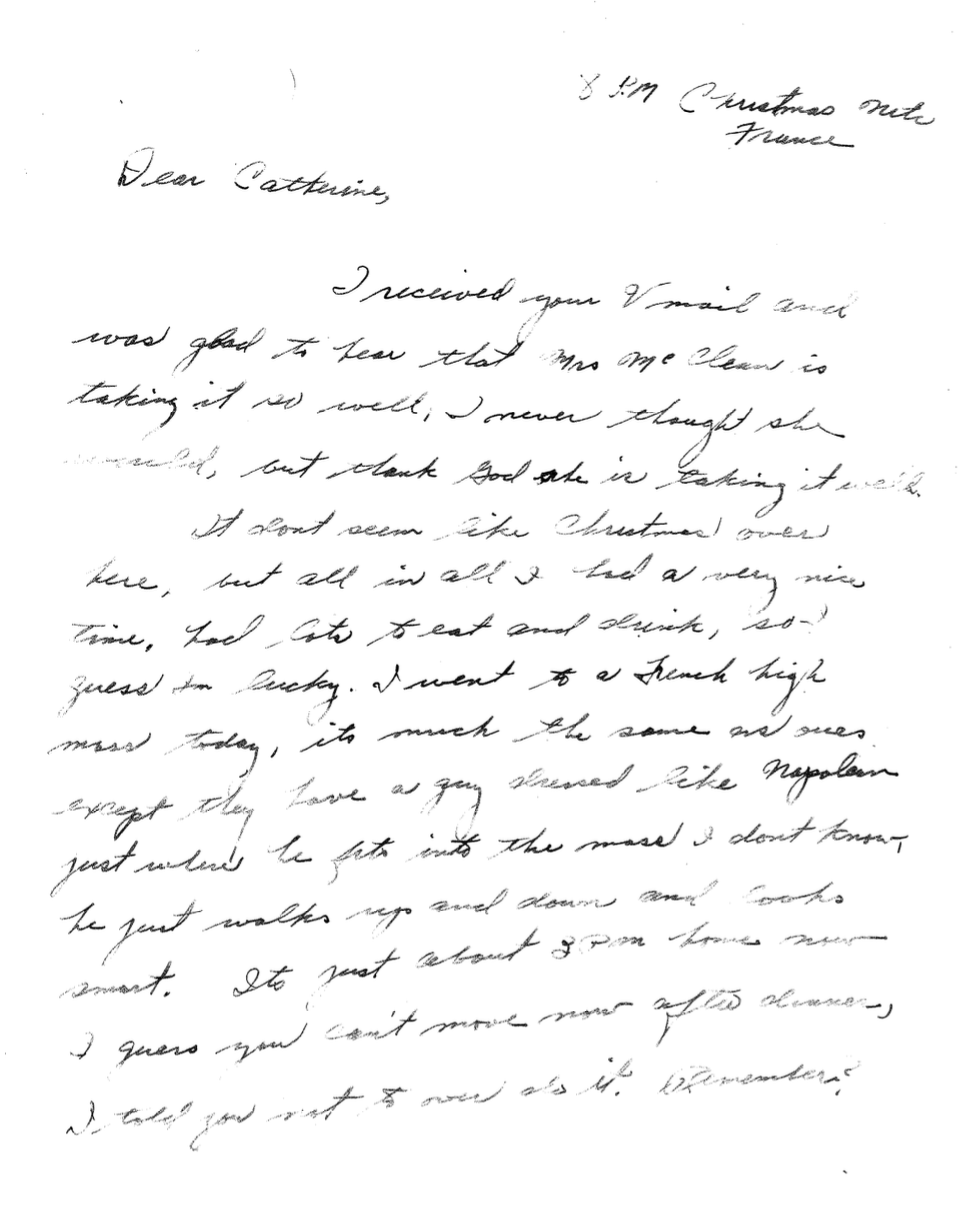 8 PM Christmas Nite
France
Dear Catherine,
I received your V mail and
was glad to hear that Mrs McClean is
taking it so well, I never thought she
would, but thank God she is taking it well.
It dont seem like Christmas over
here, but all in all I had a very nice
time, had lots to eat and drink, so I
guess Im lucky. I went to a French high
mass today, its much the same as ours
except they have a guy dressed like Napolean
just where he fits into the mass I dont know,
he just walks up and down and looks
smart. Its just about 3 PM home now
I guess you can't move now after dinner,
I told you not to over do it. Remember?